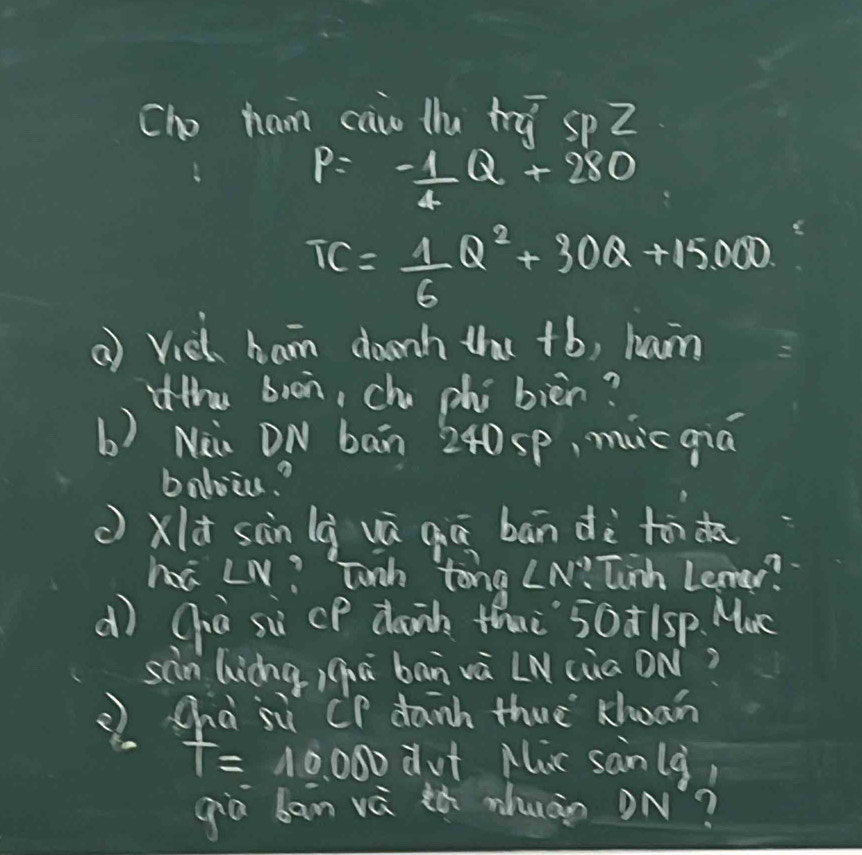 Cho hàm cầu thị trg sp Z
P = -1/4 Q + 280
TC = 1/6 Q² + 30Q + 15.000.
a) Viết hàm doanh thu tb, hàm
dthu biên, chi phí biên?
b) Nếu DN bán 240 sp, mức giá
bnhiêu?
c) X/đ sản lg và giá bán để tối đa
hoá LN? Tính tổng LN? Tính Lerner?
d) Giả sử CP đánh thuế 50đ/sp. Mức
sản lượng, giá bán và LN của DN?
e) Giả sử CP đánh thuế khoán
T = 10.000 đvt Mức sản lg,
giá bán và lợi nhuận DN?